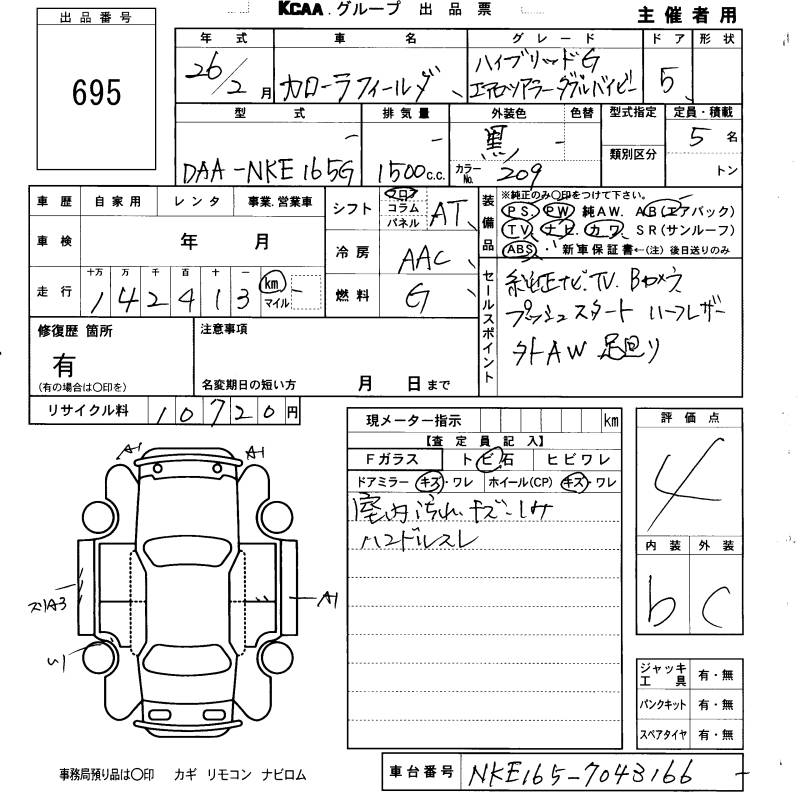 KCAA.グループ 出品票
主催者用
出品番号
695
年式 車名 グレード ドア 形状
26/2月 カローラフィールダ ハイブリッドG
エアロツアラーダブルバイビー 5
型式 排気量 外装色 色替 型式指定 定員・積載
DAA-NKE165G 1500c.c. 黒 - 5名
カラーNo. 209 類別区分 トン
車歴 自家用 レンタ 事業.営業車
車検 年 月
走行 十万 万 千 百 十 一 km マイル
142413
シフト フロア コラム パネル AT
冷房 AAC
燃料 G
装備品
※純正のみ〇印をつけて下さい。
PS. PW 純AW. AB(エアバック)
TV ナビ. カワ. SR(サンルーフ)
ABS. 新車保証書←(注) 後日送りのみ
セールスポイント
純正ナビ.TV.Bカメラ
プッシュスタート ハーフレザー
外AW 足回り
修復歴 箇所
有
(有の場合は〇印を)
注意事項
名変期日の短い方 月 日まで
リサイクル料 10720円
現メーター指示 km
【査定員記入】
Fガラス トビ石 ヒビワレ
ドアミラー キズ・ワレ ホイール(CP) キズ・ワレ
室内汚れ.キズ.シミ
ハンドルスレ
評価点
4
内装 外装
b C
A1 A1
ズリA3
A1
ジャッキ工具 有・無
パンクキット 有・無
スペアタイヤ 有・無
事務局預り品は〇印 カギ リモコン ナビロム
車台番号 NKE165-7043166